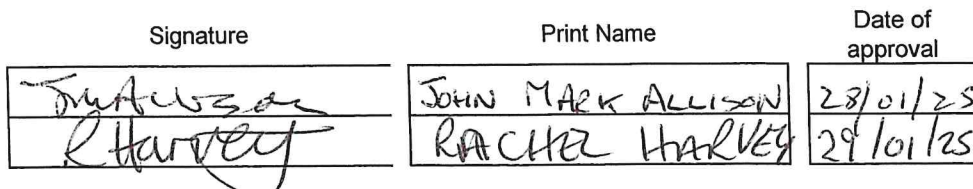 Signature Print Name Date of approval
JM Allison JOHN MARK ALLISON 28/01/25
R Harvey RACHEL HARVEY 29/01/25